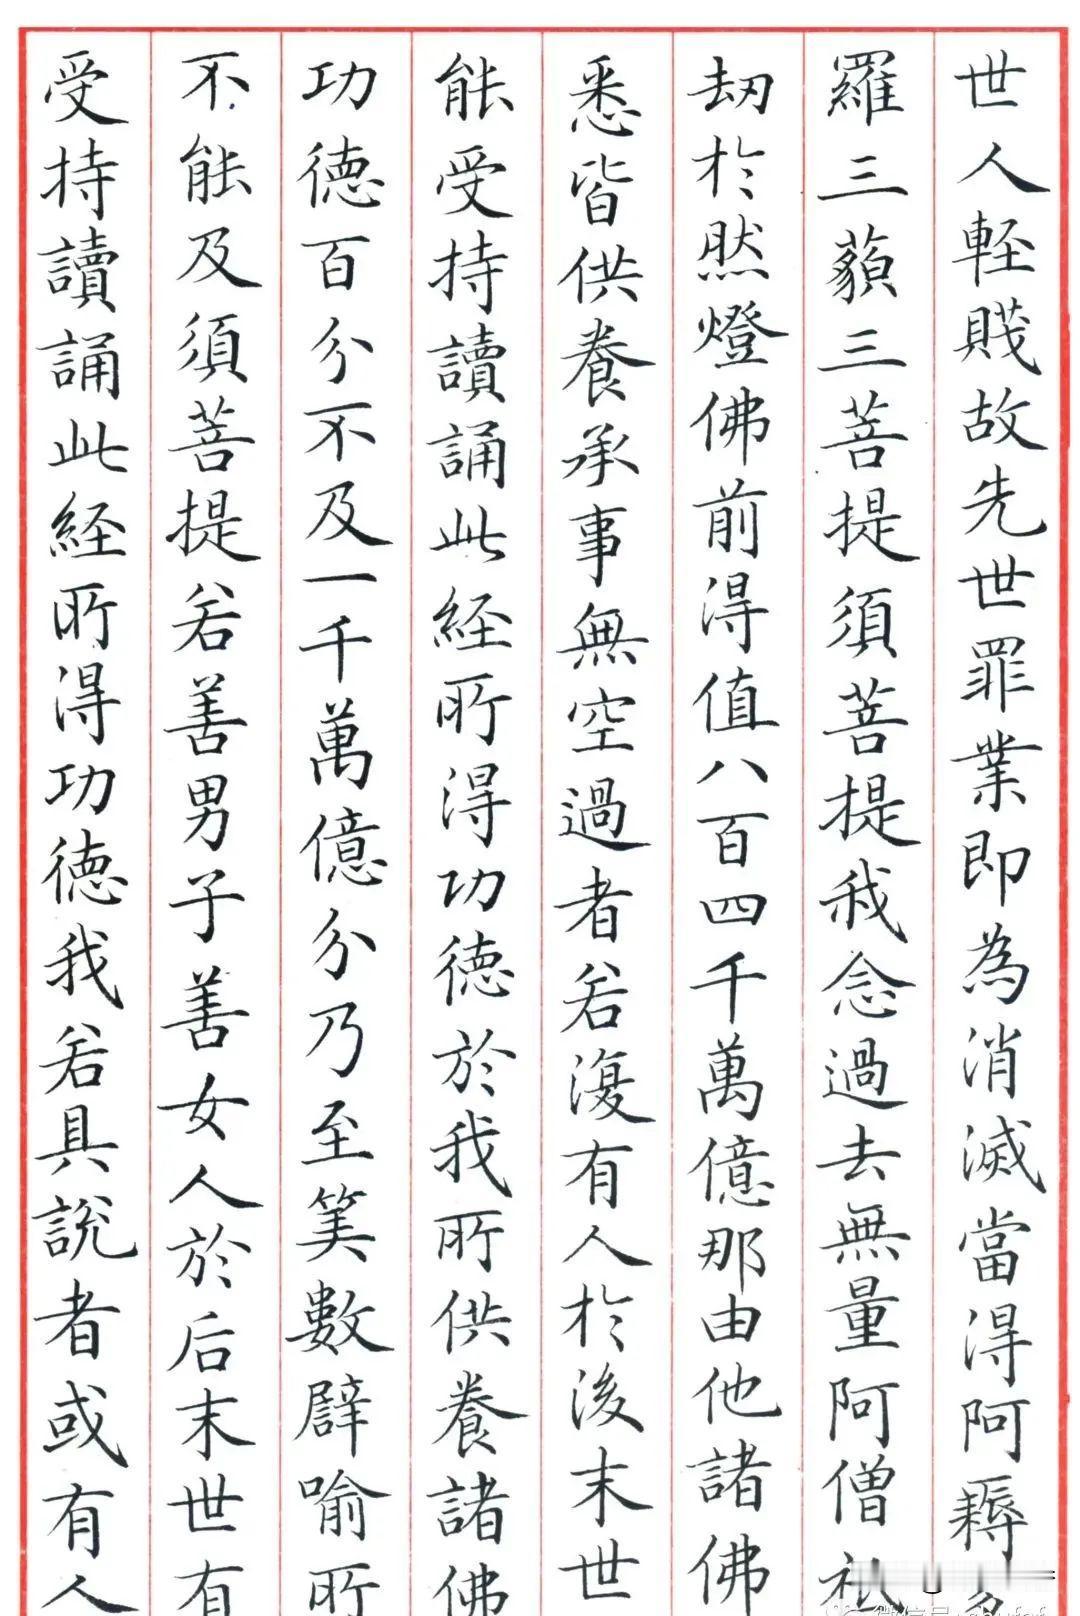 世人軽賤故先世罪業即為消滅當得阿耨
羅三藐三菩提須菩提我念過去無量阿僧祇
劫於然燈佛前得值八百四千萬億那由他諸佛
悉皆供養承事無空過者若復有人於後末世
能受持讀誦此経所得功徳於我所供養諸佛
功徳百分不及一千萬億分乃至筭數譬喻所
不能及須菩提若善男子善女人於后末世有
受持讀誦此経所得功徳我若具說者或有人